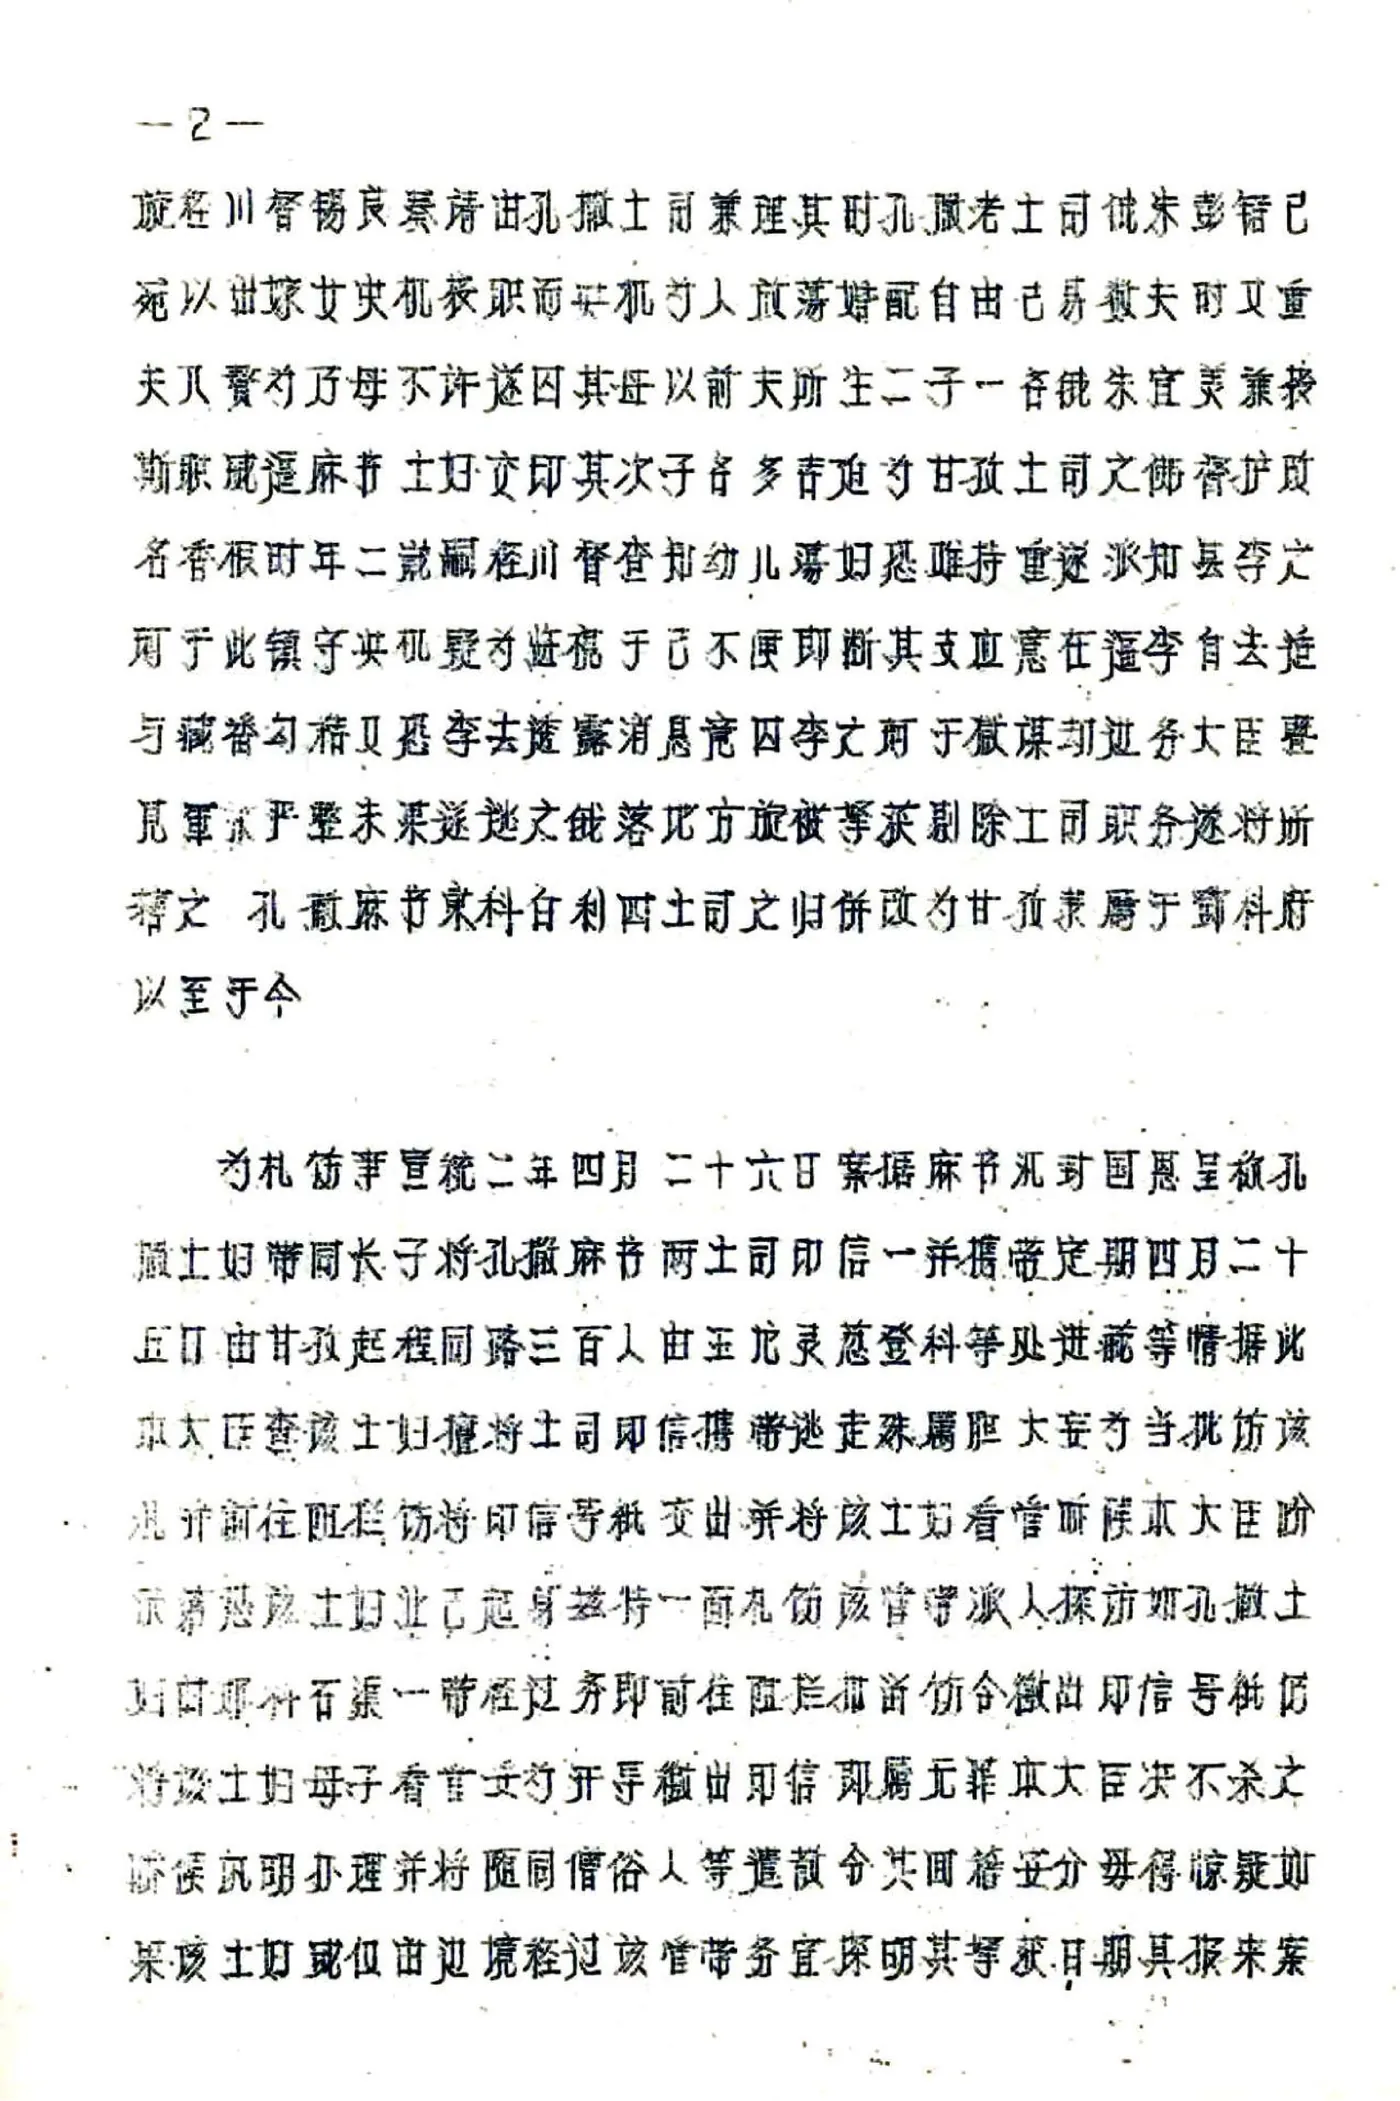 —2—
旋经川督锡良奏请由孔撒土司兼理其时孔撒老土司俄朱彭错已
死以出嫁女央机接职而央机为人放荡婚配自由已易数夫时又重
夫入赘为乃母不许遂因其母以前夫所生二子一名俄朱宜美兼接
斯职威逼麻书土妇交印其次子各多吉追为甘孜土司之佛督护改
名香根时年二岁嗣经川督查知幼儿荡妇恐难持重遂派知县李之
珂于此镇守央机疑为监视于己不便即断其支应意在逼李自去适
与藏番勾稽又恐李去透露消息竟囚李之珂于狱谋劫边务大臣暨
见军容严整未果遂逃之俄落地方旋被拏获剔除土司职务遂将所
辖之 孔撒麻书东科白利四土司之归併改为甘孜隶属于邓科府
以至于今
为札饬事宣统二年四月二十六日案据麻书汛封国恩呈称孔
撒土妇带同长子将孔撒麻书两土司印信一并携带定期四月二十
五日由甘孜起程同路三百人由玉龙灵葱登科等处进藏等情据此
本大臣查该土妇擅将土司印信携带逃走殊属胆大妄为当批饬该
汛弁前往阻拦饬将印信号纸交出并将该土妇看管听候本大臣
示第恐该土妇业已起身兹特一面札饬该管带派人探访如孔撒土
妇由邓科石渠一带经过务即前往阻拦扣留饬令缴出印信号纸仍
将该土妇母子看管妥为开导缴出印信即属无罪本大臣决不杀之
听候讯明办理并将随同僧俗人等遣散令其回籍安分毋得惊疑如
果该土妇或仅由边境经过该管带务宜探明其拏获日期具报来案